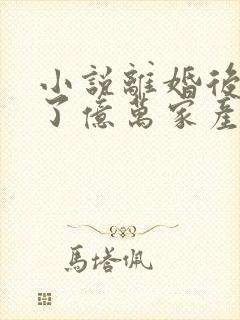 小說離婚後
了億萬家產
馬塔佩